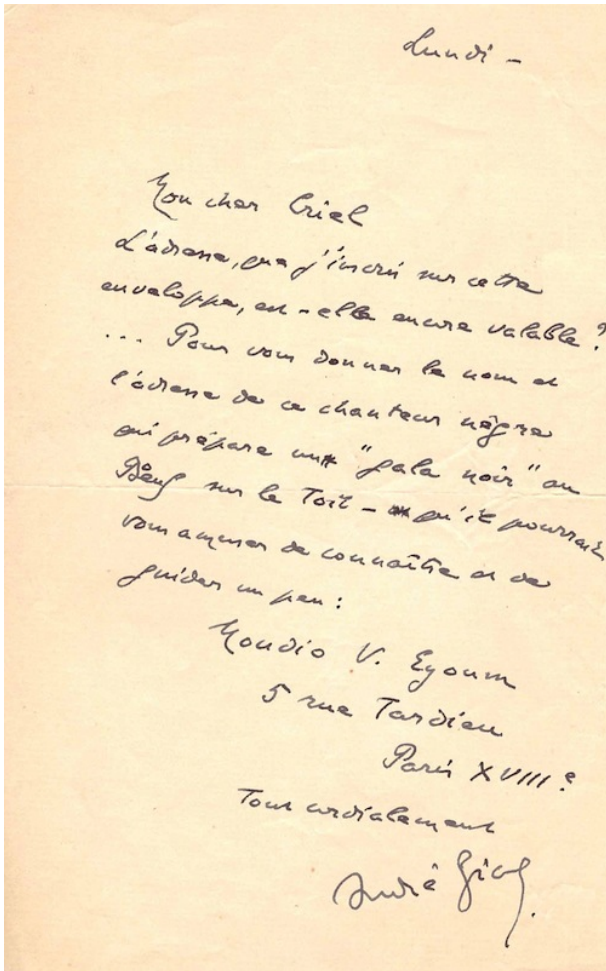 Lundi -
Mon cher Criel
L'adresse, que j'inscris sur cette
enveloppe, est-elle encore valable ?
... Pour vous donner le nom et
l'adresse de ce chanteur nègre
qui prépare un "gala noir" au
Bœuf sur le Toit - qu'il pourrait
vous amuser de connaître et de
guider un peu :
Moudio V. Eyoum
5 rue Tardieu
Paris XVIIIe.
Tout cordialement
André Gide.